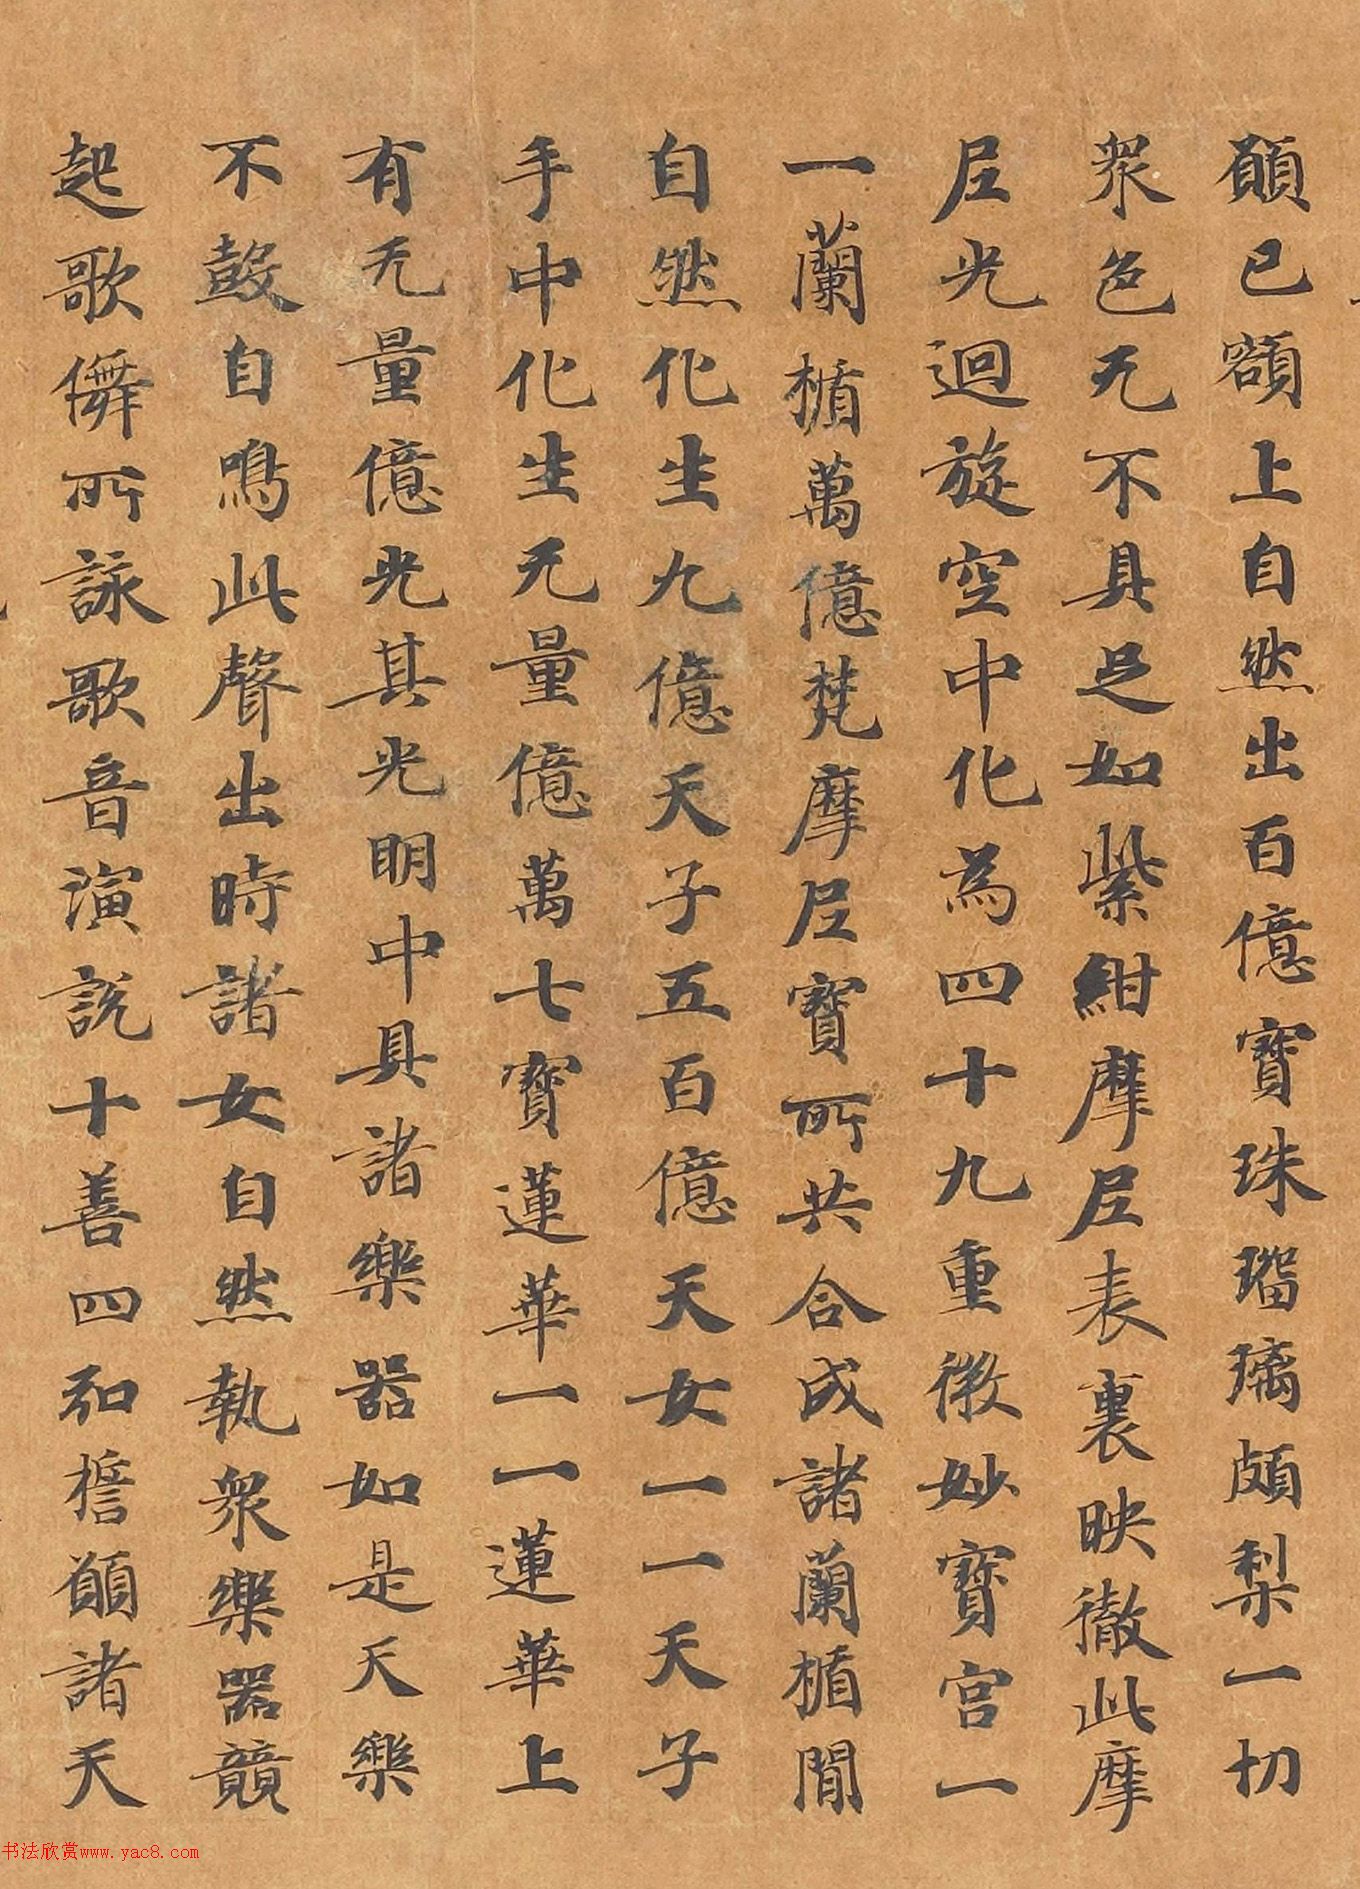 願已額上自然出百億寶珠瑠璃頗梨一切
衆色无不具足如紫紺摩尼表裏映徹此摩
尼光迴旋空中化為四十九重微妙寶宮一
一蘭楯萬億梵摩尼寶所共合成諸蘭楯間
自然化生九億天子五百億天女一一天子
手中化生无量億萬七寶蓮華一一蓮華上
有无量億光其光明中具諸樂器如是天樂
不鼓自鳴此聲出時諸女自然執衆樂器競
起歌儛所詠歌音演說十善四弘誓願諸天
书法欣赏www.yac8.com